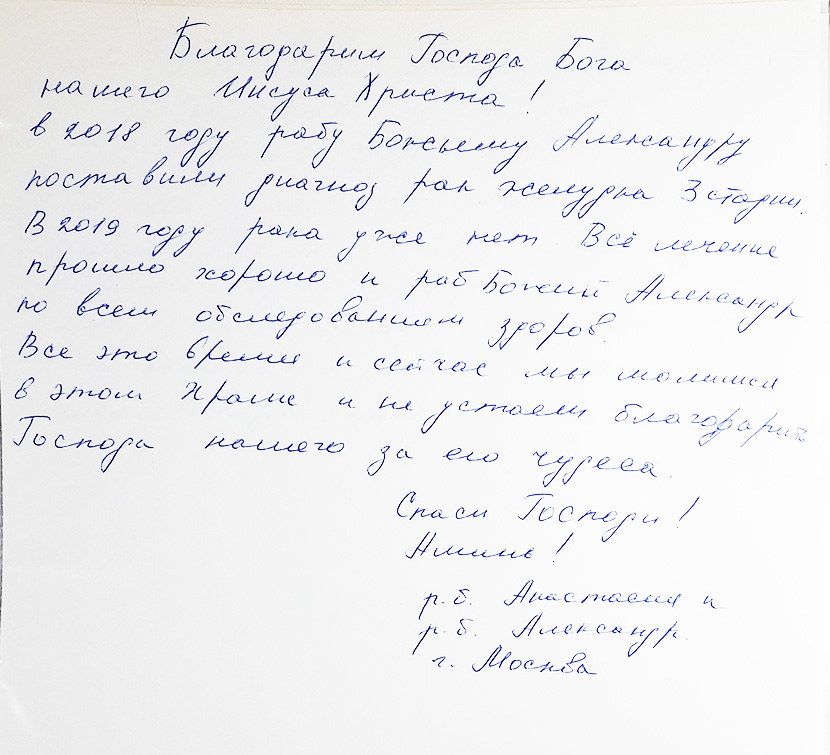 Благодарим Господа Бога
нашего Иисуса Христа!
в 2018 году рабу Божьему Александру
поставили диагноз рак желудка 3 стадии.
В 2019 году рака уже нет. Всё лечение
прошло хорошо и раб Божий Александр
по всем обследованиям здоров.
Все это время и сейчас мы молимся
в этом Храме и не устаем благодарить
Господа нашего за его чудеса.
Спаси Господи!
Аминь!
р.б. Анастасия и
р.б. Александр.
г. Москва